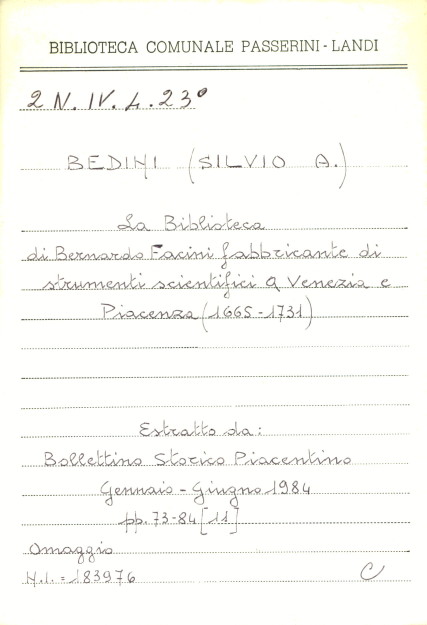 BIBLIOTECA COMUNALE PASSERINI-LANDI
2 N. IV. L. 23°
BEDINI (SILVIO A.)
La Biblioteca
di Bernardo Facini fabbricante di
strumenti scientifici a Venezia e
Piacenza (1665-1731)
Estratto da:
Bollettino Storico Piacentino
Gennaio - Giugno 1984
pp. 73-84 [11]
Omaggio
N.I. = 183976 C